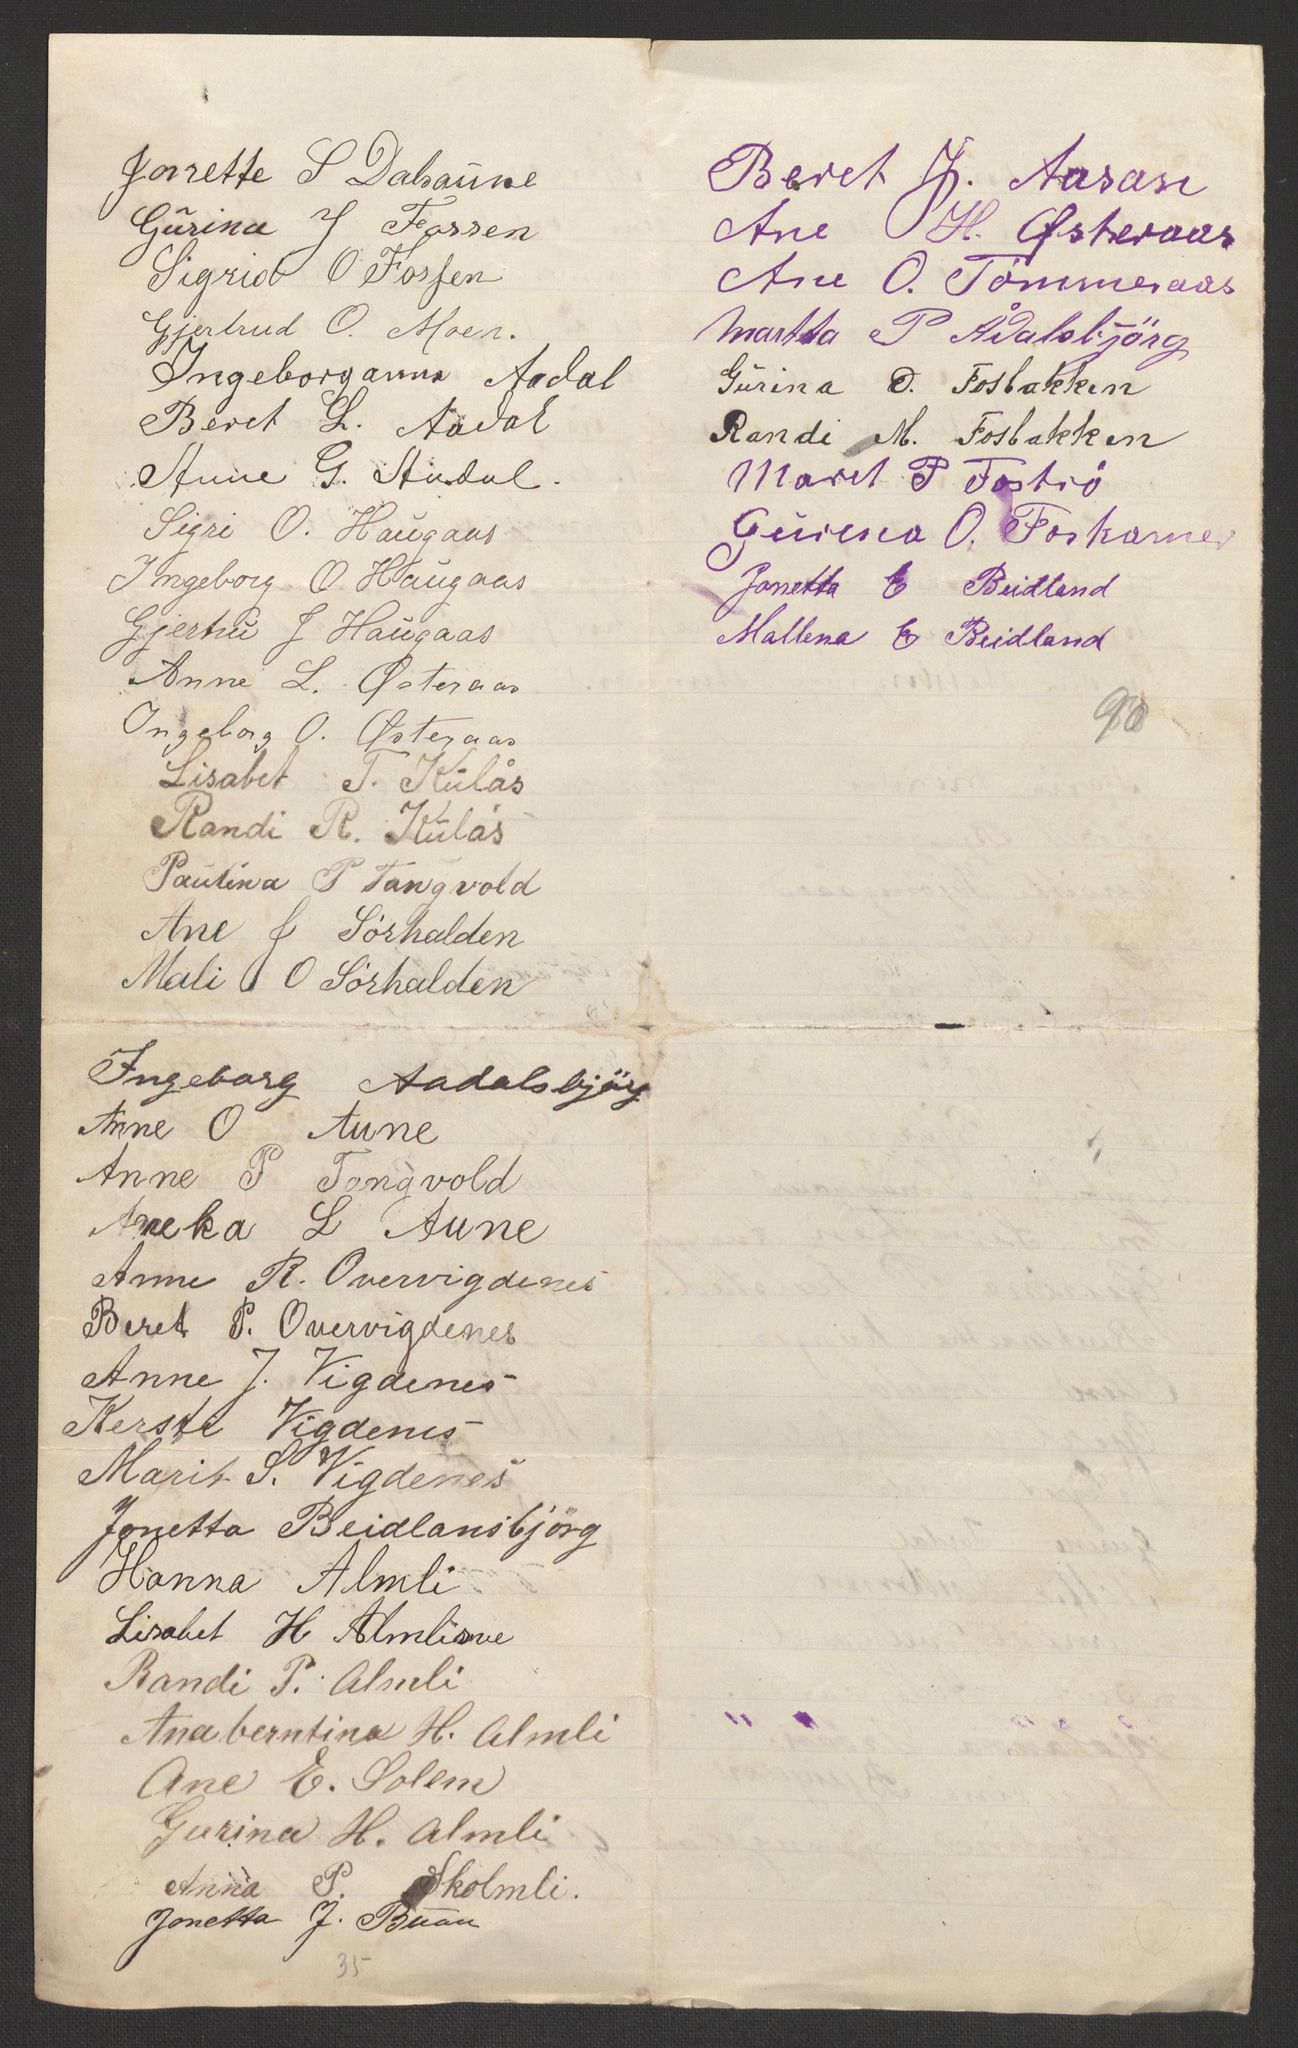 Jonette S Dalsaune
Gŭrina J Fossen
Sigrid O Fossen
Gjertrud O. Moen.
Ingeborganna Aadal
Beret L. Aadal
Anne G. Aadal.
Sigri O. Haŭgaas
Ingeborg O Haŭgaas
Gjertrŭ J Haŭgaas
Anne L. Østeraas
Ingeborg O. Østeraas
Lisabet T. Kŭlås
Randi R. Kŭlås
Paulina P Tangvold
Ane J Sörhalden
Mali O Sörhalden
Ingeborg Aadalsbjörg
Anne O Aune
Anne P Tangvold
Aneka L Aune
Anne R. Overvigdenes
Beret P. Overvigdenes
Anne J. Vigdenes
Kerste Vigdenes
Marit S. Vigdenes
Jonetta Beidlansbjörg
Hanna Almli
Lisabet H Almlisve
Randi P. Almli
Anaberntina H. Almli
Ane E. Solem
Gurina H. Almli
Anna P. Skolmli.
Jonetta J. Buan
35
Beret J. Aasan
Ane H. Østeraas
Ane O. Tömmeraas
Martta P Ådalsbjörg
Gŭrina O. Fosbakken
Randi M. Fosbakken
Maret P Foströ
Gŭrina O. Foskarnes
Jonetta E Beidland
Mallena E Beidland